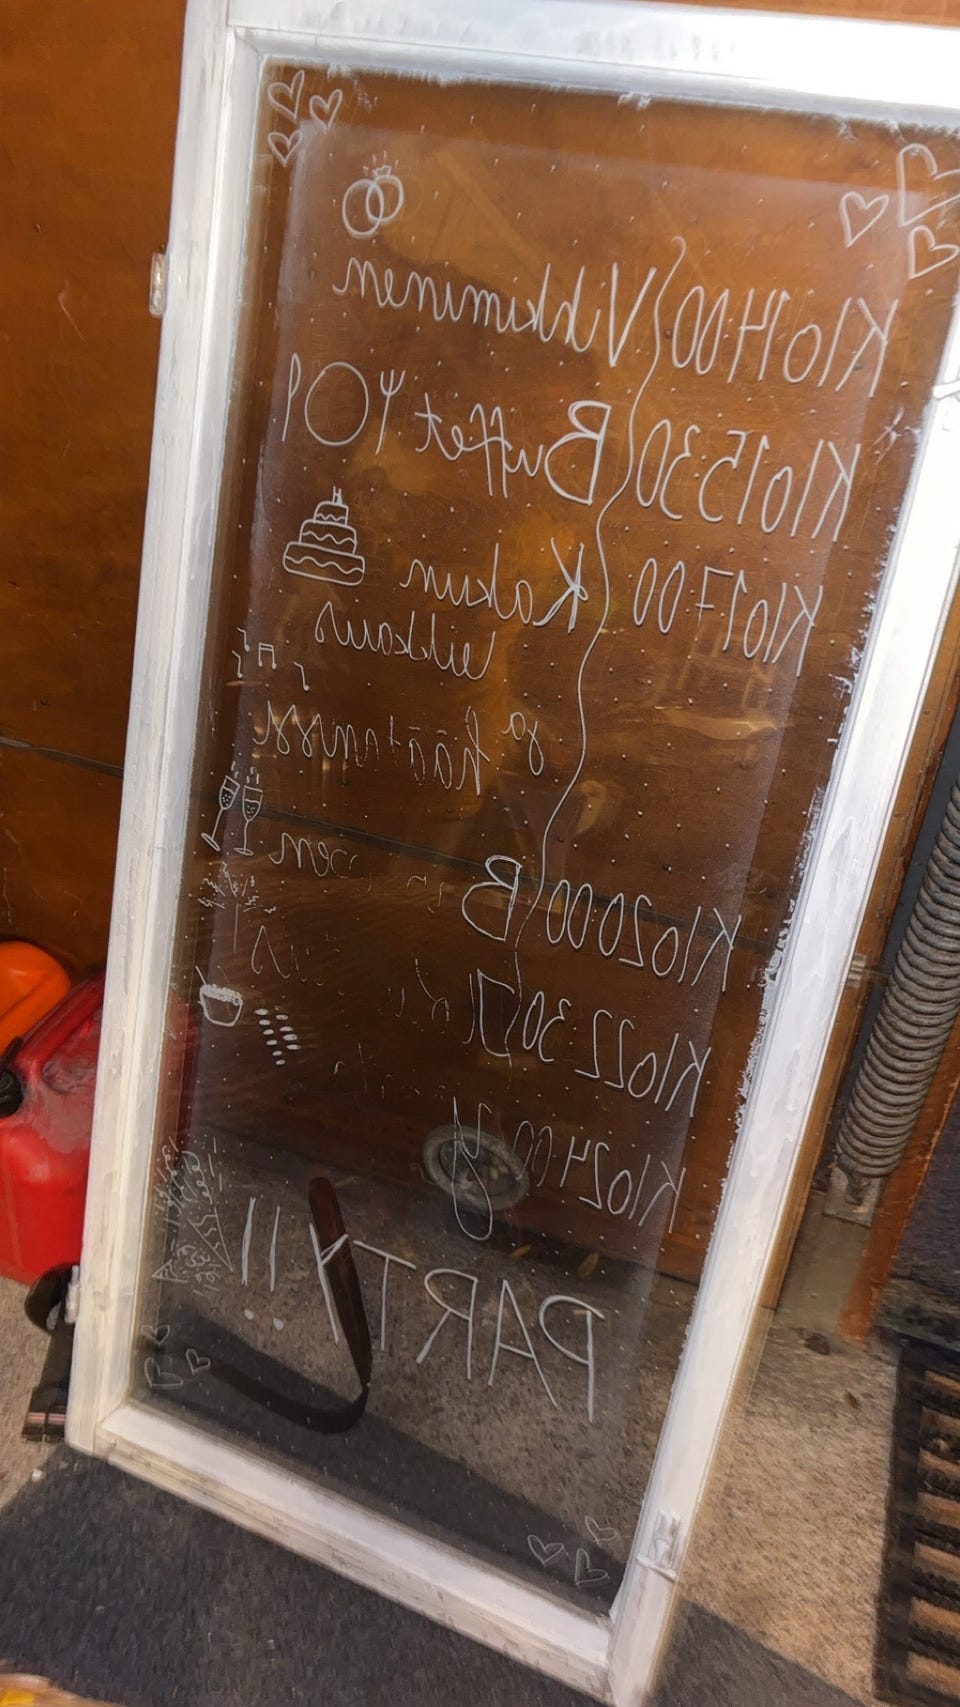 Klo 14:00 Vihkiminen
Klo 15:30 Buffet
Klo 17:00 Kakun
leikkaus
ja
häätanssi
Klo 20:00
Klo 22:30
Klo 24:00
PARTY!!!